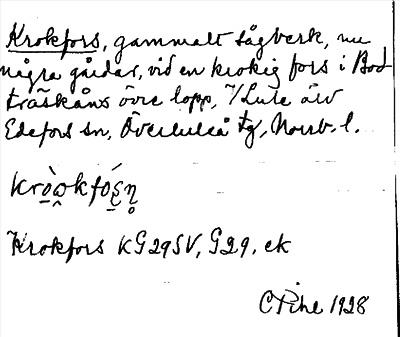 Krokfors, gammalt sågverk, nu
några gårdar, vid en krokig fors i Bod
träskåns övre lopp, 7/ Lule älv
Edefors sn, Överluleå tg, Norrb. l.
Krokfors KG29SV, G29, ek
1928